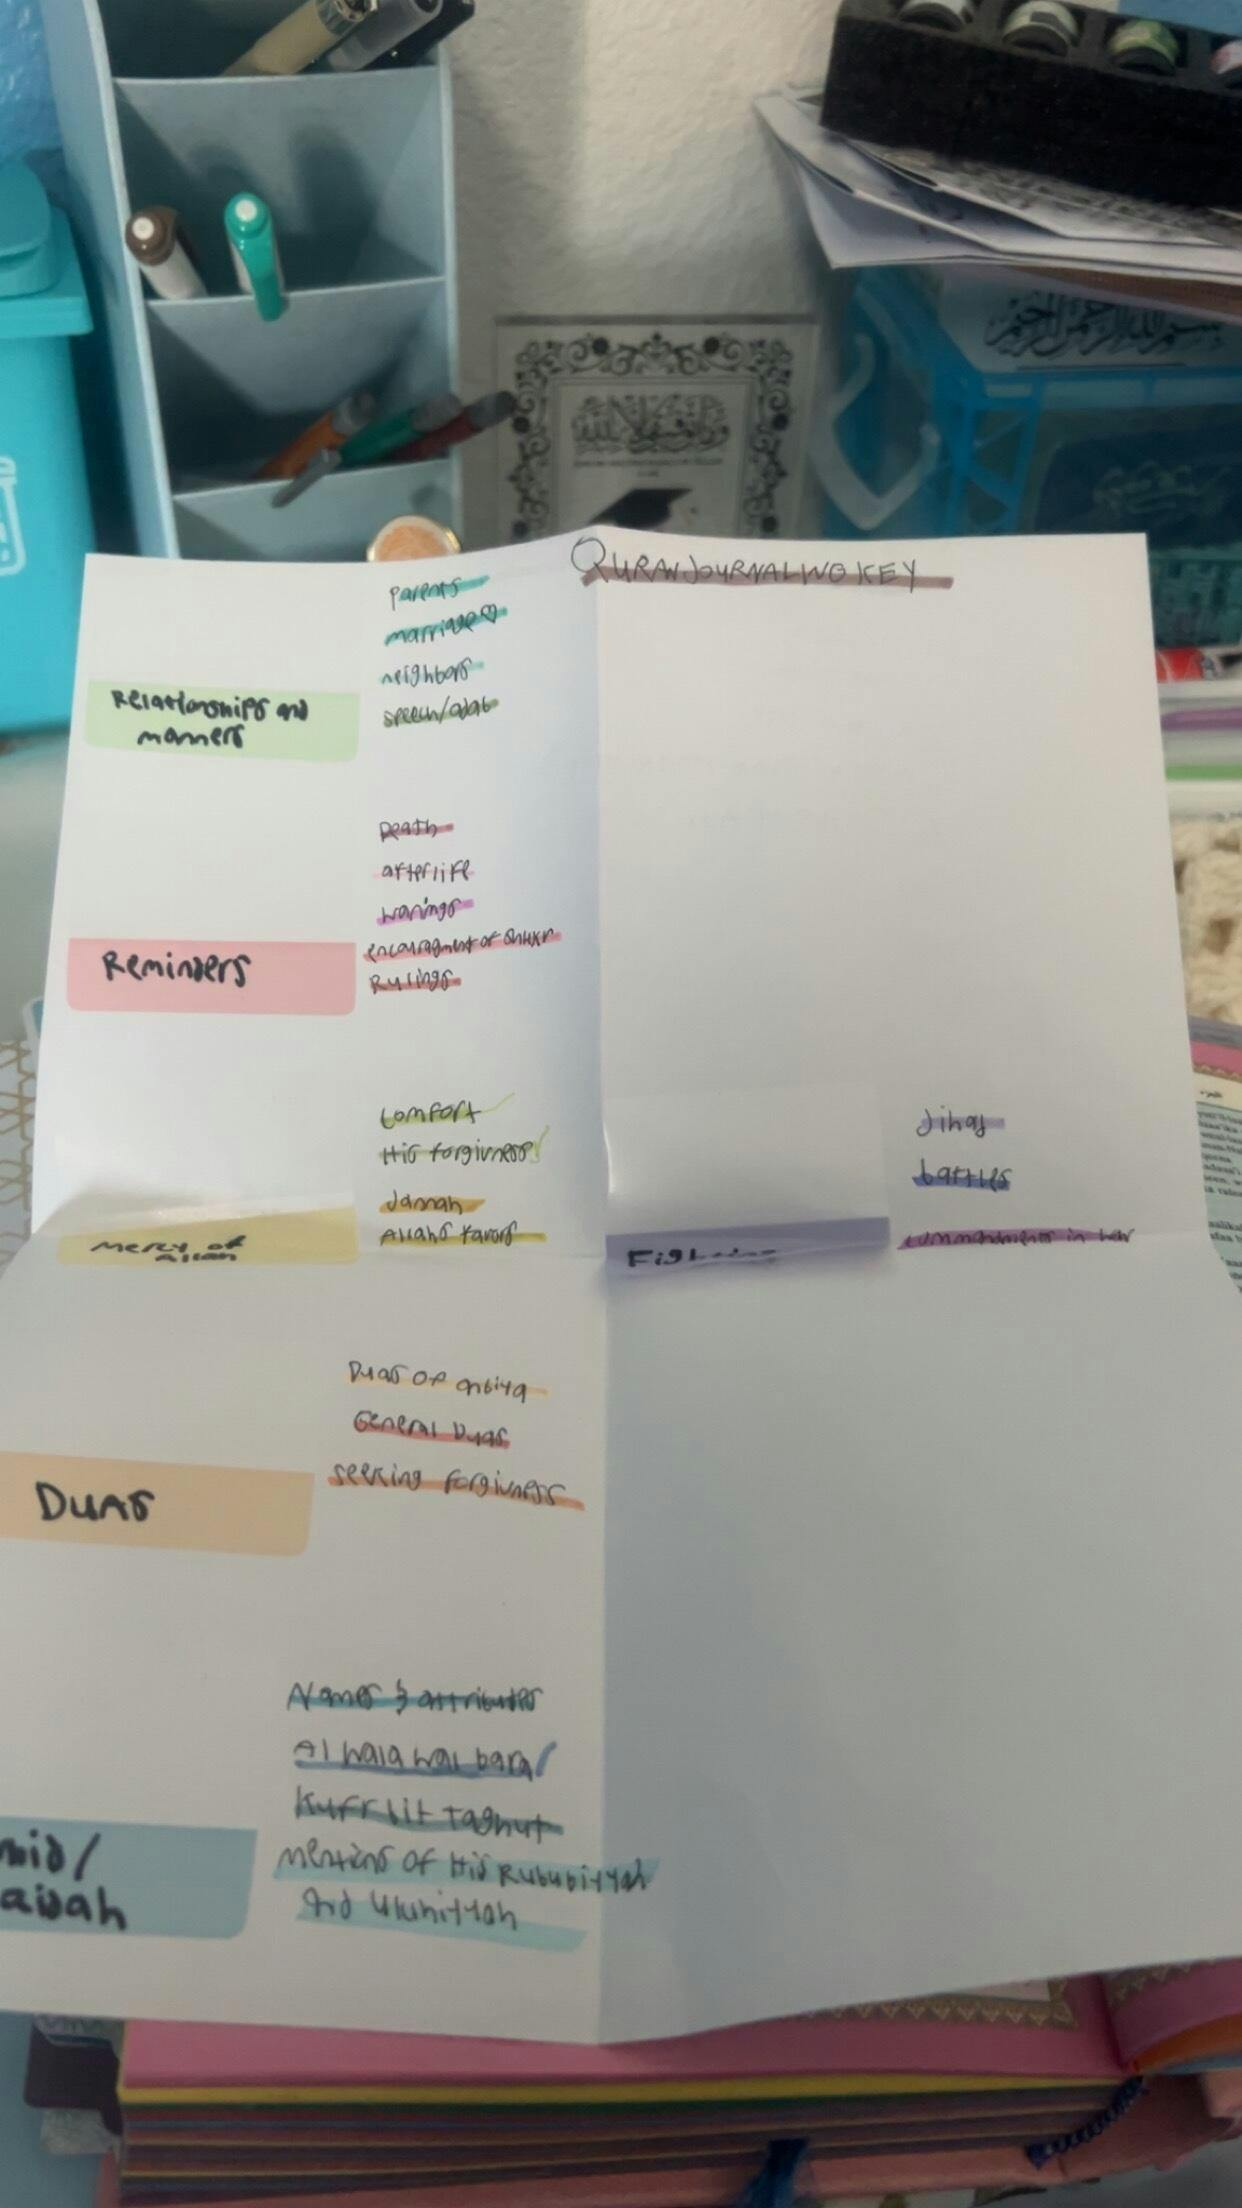 QURAN JOURNALING KEY
parents
marriage♡
neighbors
speech/adab
Relationships and
manners
Death
afterlife
warings
encouragment of shukr
Rulings
Reminders
Comfort
His forgivness
Jannah
Allahs favors
Mercy of
Allah
Jihad
battles
commandments in
Fighting
Duas of anbiya
General Duas
seeking forgivness
Duas
Names & attributes
Al wala wal bara
Kufr bit Taghut
mentions of His Rububiyyah
and Uluhiyyah